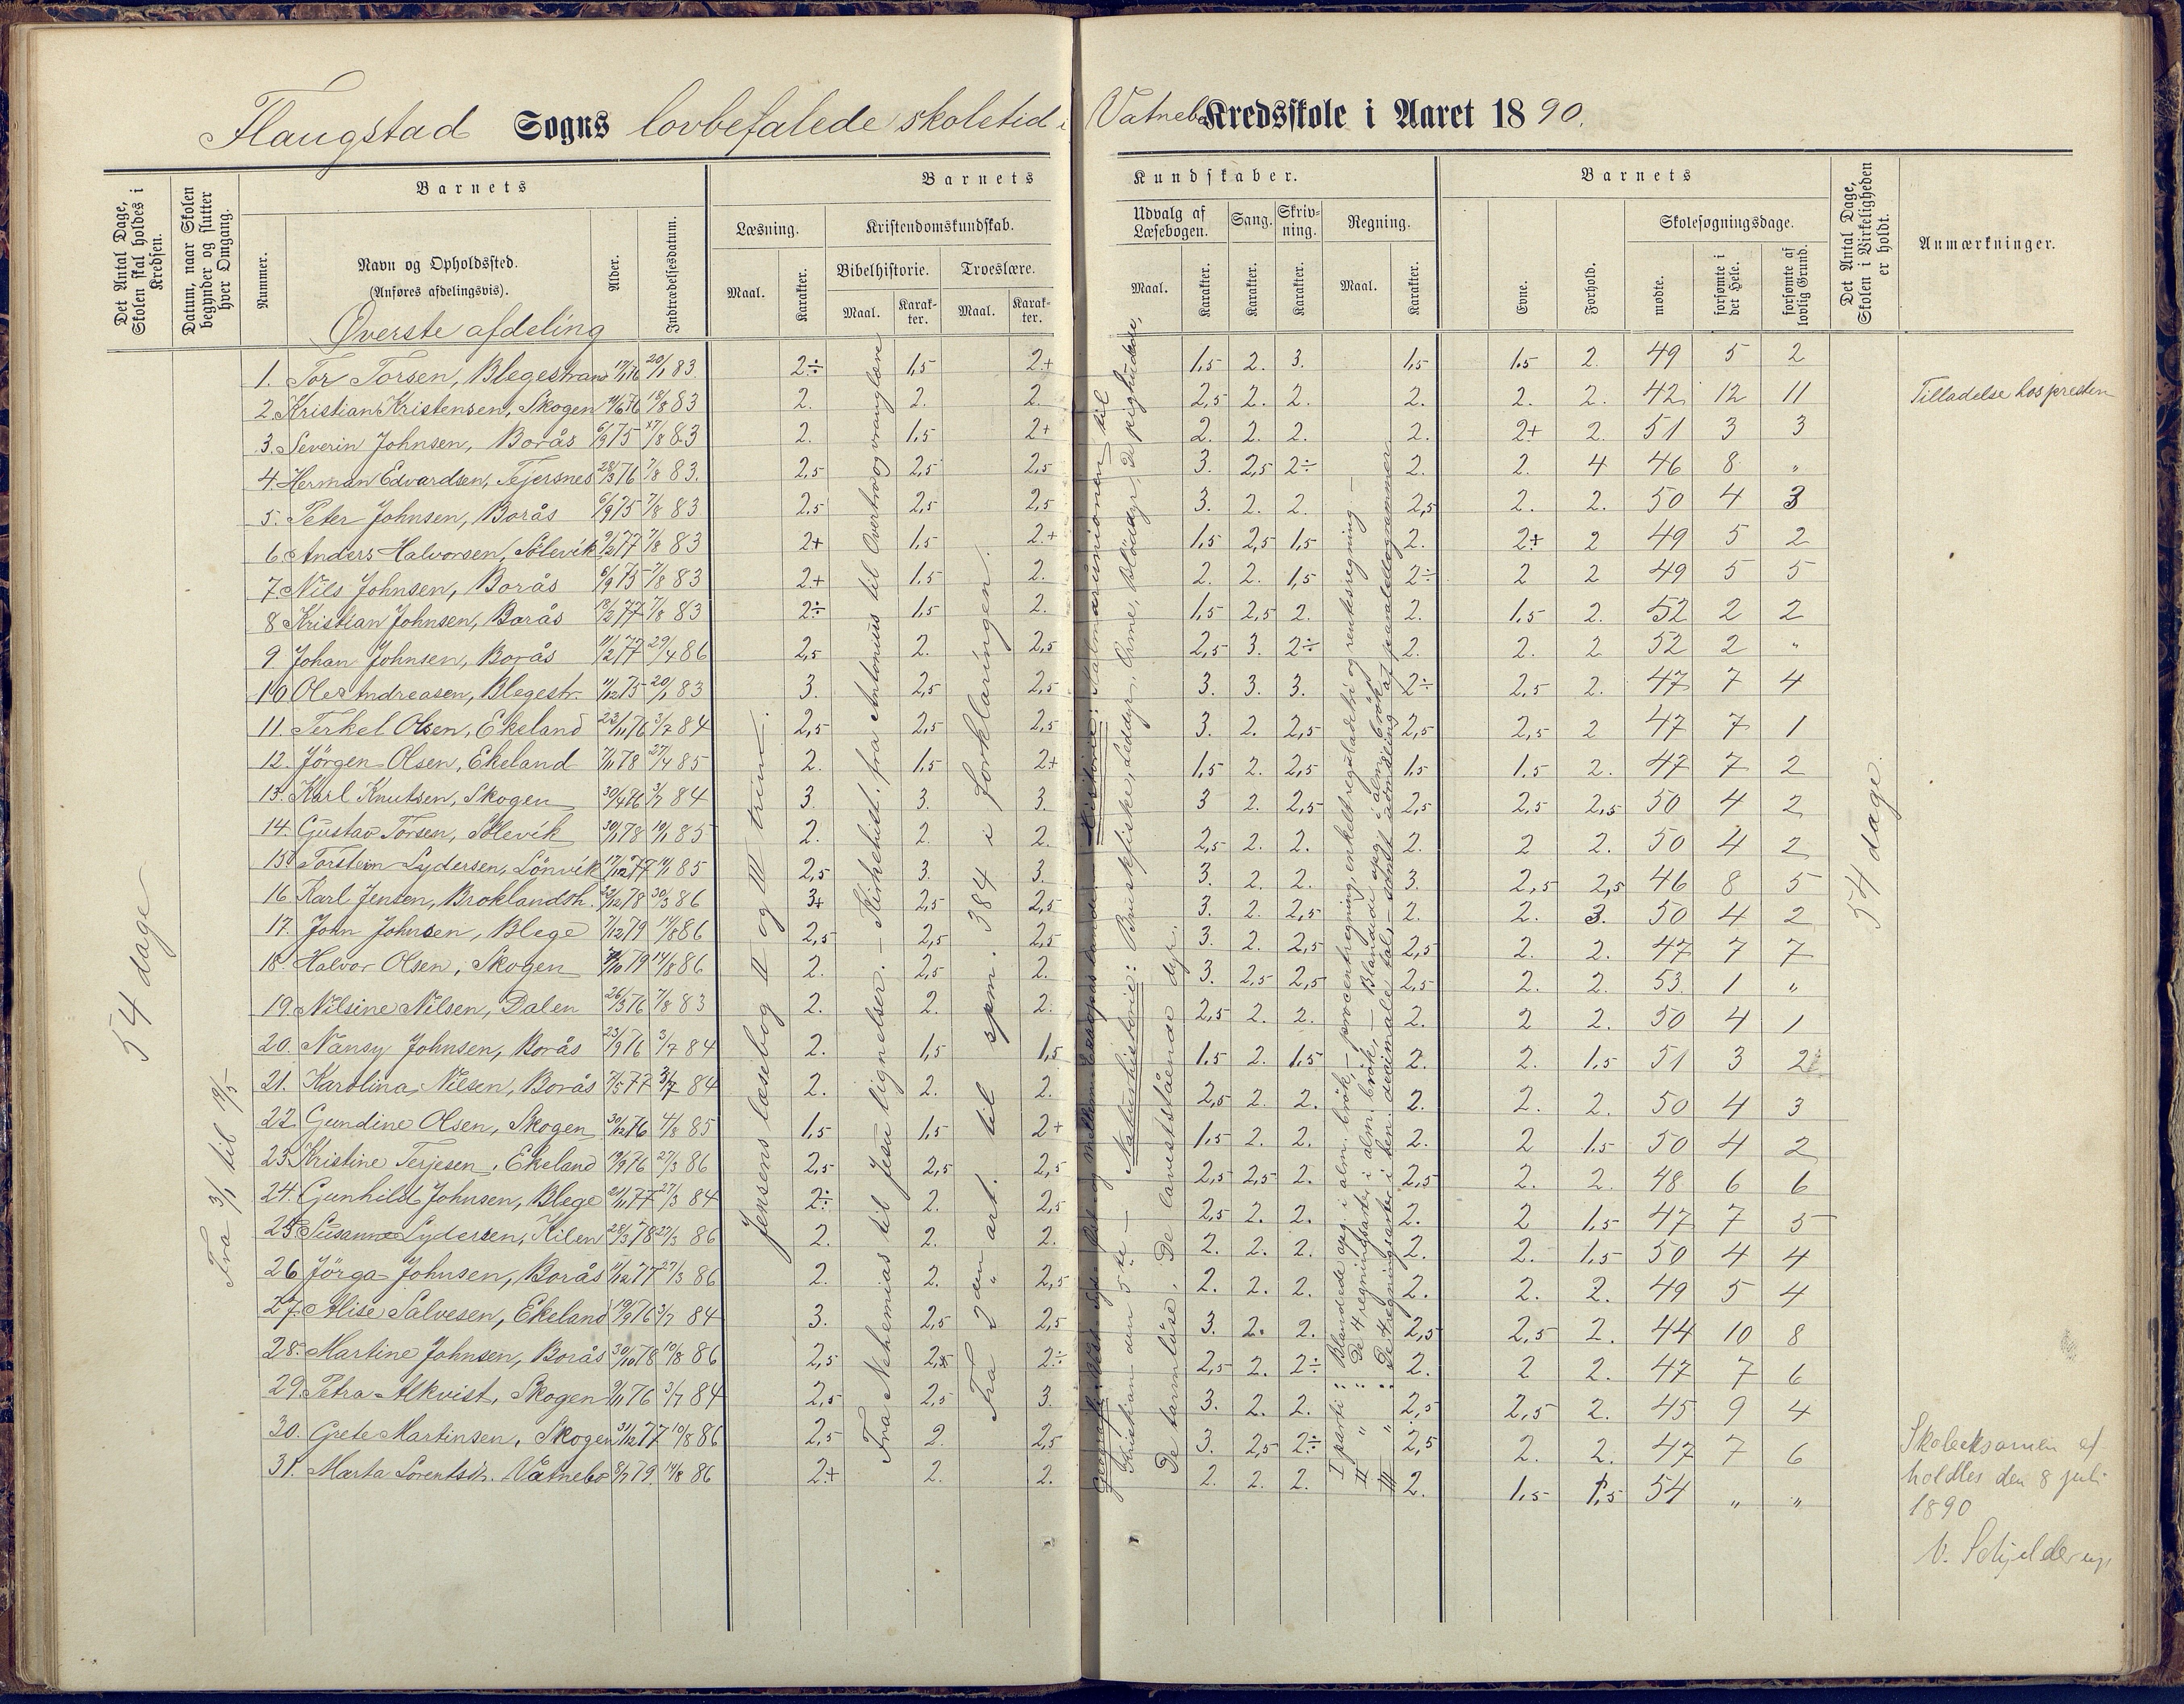 Flaugstad Sogns lovbefalede skoletid i Vatnebo Kredsskole i Aaret 1890.
Det Antal Dage, Skolen skal holdes i Kredsen.
Datum, naar Skolen begynder og slutter hver Omgang.
Barnets
Nummer.
Navn og Opholdssted.
(Anføres afdelingsvis).
Alder.
Indtrædelsesdatum.
Barnets Kundskaber.
Læsning.
Maal.
Karakter.
Kristendomskundskab.
Bibelhistorie.
Maal.
Karakter.
Troeslære.
Maal.
Karakter.
Udvalg af Læsebogen.
Maal.
Karakter.
Sang.
Karakter.
Skrivning.
Karakter.
Regning.
Maal.
Karakter.
Barnets
Evne.
Forhold.
Skolesøgningsdage.
mødte.
forsømte i det Hele.
forsømte af lovlig Grund.
Det Antal Dage, Skolen i Virkeligheden er holdt.
Anmærkninger.
Øverste afdeling
54 dage
Fra 3/1 til 19/5
1. Tor Torsen, Blegestrand 17/1 76 20/1 83 2÷ 1,5 2+ 1,5 2. 3. 1,5 1,5 2. 49 5 2
2. Kristian Kristensen, Skogen 76 18/8 83 2. 2. 2. 2,5 2. 2. 2. 2. 2. 42 12 11 Tilladelse hos presten
3. Severin Johnsen, Borås 6/9 75 17/8 83 2. 1,5 2+ 2. 2. 2. 2. 2+ 2. 51 3 3
4. Herman Edvardsen, Tejersnes 28/3 76 7/8 83. 2,5 2,5 2,5 3. 2,5 2÷ 2. 2. 4 46 8 "
5. Peter Johnsen, Borås 6/9 75 7/8 83 2,5 2,5 2,5 3. 2. 2. 2,5 2. 2. 50 4 3
6. Anders Halvorsen, Sölevik 9/2 77 7/8 83 2+ 1,5 2+ 1,5 2,5 1,5 2. 2+ 2 49 5 2
7. Nils Johnsen, Borås 6/9 75 7/8 83 2+ 1,5 2. 2. 2. 1,5 2÷ 2 2 49 5 5
8 Kristian Johnsen, Borås 18/2 77 7/8 83 2÷ 1,5 2. 1,5 2,5 2. 2. 1,5 2. 52 2 2
9 Johan Johnsen, Borås 11/2 77 29/4 86 2,5 2. 2,5 2,5 3. 2÷ 2. 2. 2 52 2 "
10 Ole Andreasen, Blegestr. 11/12 75 20/1 83 3. 2,5 2,5 3. 3. 3. 2÷ 2,5 2. 47 7 4
11. Terkel Olsen, Ekeland 23/11 76 3/7 84 2,5 2,5 2,5 3. 2. 2,5 2,5 2,5 2 47 7 1
12. Jörgen Olsen, Ekeland 7/11 78 27/4 85 2. 1,5 2+ 1,5 2. 2,5 1,5 1,5 2. 47 7 2
13. Karl Knutsen, Skogen 30/4 76 3/7 84 3. 3. 3. 3 2. 2,5 2,5 2,5 2,5 50 4 2
14. Gustav Torsen, Sölevik 30/1 78 19/1 85 2. 2. 2. 2,5 2. 2. 2. 2 2. 50 4 2
15. Torstein Lydersen, Lönvik 17/12 77 14/1 85 2,5 3. 3. 3. 2. 2. 3. 2,5 2,5 46 8 5
16. Karl Jensen, Broklandsh. 78 30/3 86 3+ 2,5 2,5 3. 2. 2,5 2. 2. 3. 50 4 2
17. John Johnsen, Blege 7/12 79 14/8 86 2,5 2,5 2,5 3. 2. 2,5 2,5 2. 2. 47 7 7
18. Halvor Olsen, Skogen 79 14/8 86 2. 2,5 2. 3. 2,5 2,5 2,5 2. 2. 53 1 "
19. Nilsine Nilsen, Dalen 26/3 76 7/8 83 2. 2. 2. 2,5 2. 2. 2. 2 2. 50 4 1
20. Nansy Johnsen, Borås 23/9 76 3/7 84 2. 1,5 1,5 1,5 2. 1,5 2. 2. 1,5 51 3 2
21. Karolina Nilsen, Borås 7/5 77 3/7 84 2. 2. 2. 2,5 2. 2. 2. 2. 2. 50 4 3
22 Gundine Olsen, Skogen 30/12 76 4/8 85 1,5 1,5 2+ 1,5 2. 2. 2. 2 1,5 50 4 2
23. Kristine Terjesen, Ekeland 19/9 76 27/3 86 2,5 2,5 2,5 2,5 2,5 2. 2,5 2. 2. 48 6 6
24. Gunhild Johnsen, Blege 21/11 77 27/3 84 2÷ 2. 2,5 2,5 2. 2. 2. 2 1,5 47 7 5
25. Susanne Lydersen, Kilen 28/3 78 27/3 86 2. 2. 2. 2. 2. 2. 2. 2. 1,5 50 4 4
26 Jörga Johnsen, Borås 11/12 77 27/3 86 2. 2. 2,5 2. 2. 2. 2. 2. 2. 49 5 4
27. Alise Salvesen, Ekeland 19/9 76 3/7 84 3. 2,5 2,5 3. 2. 2. 2,5 2,5 2. 44 10 8
28. Martine Johnsen, Borås 30/10 78 19/8 86 2,5 2,5 2÷ 2,5 2. 2÷ 2. 2 2. 47 7 6
29. Petra Alkvist, Skogen 9/11 76 3/7 84 2,5 2,5 3. 3. 2. 2. 2,5 2,5 2. 45 9 4
30. Grete Martinsen, Skogen 31/12 77 19/8 86 2,5 2. 2,5 3. 2,5 2÷ 2,5 2. 2. 47 7 6
31. Marta Lorentsd. Vatnebo 8/7 79. 14/8 86 2+ 2. 2. 2. 2. 2. 2. 1,5 1,5 54 " "
Jensens læsebog II og III trin.
Fra Nehemias til Jesu lignelser. – Kirkehist. fra Antonius til Overtro og vranglære
Fra 2den art. til spm. 384 i forklaringen.
Kalmarunionen til
Kristian den 5te – Naturhistorie: Bruskfiske, Leddyr, Orme, Blöddyr, De pighudede,
De tarmlöse, De laveststående dyr.
I parti: Blandede opg. i alm. brök, – procentregning, enkelt reguladetri og rentesregning –
II " : De 4 regningsarter i alm. brök, – Blandede opg. i alm. brök
III " : De 4 regningsarter i hen. decimale tal, – samt utmåling af parallelogrammer
54 dage.
Skoleeksamen afholdtes den 8 juli 1890
V. Schjelderup.